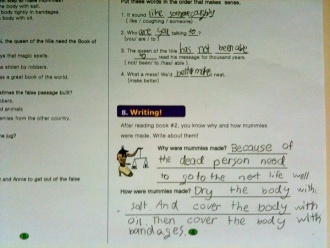 he body with salt.
body tightly in bandages.
body with oil.
the queen of the Nile need the Book of
that magic spells.
stolen by robbers.
as a great book of the world.
times the false passage built?
bbers.
d animals.
from the other country.
he jug?
and Annie to get out of the false
Put these words in the order that makes sense.
1. It sound like someone coughing
( like / coughing / someone)
2. Who are you talking to?
(you/ are / to )
3. The queen of the Nile has not been able
to read his message for thousand years.
( not/ been/ to /has/ able )
4. What a mess! We'd better make neat.
(make better)
8. Writing!
After reading book #2, you know why and how mummies
were made. Write about them!
Why were mummies made? Because of
the dead person need
to go to the next life well
How were mummies made? Dry the body with
salt And cover the body with
oil. Then cover the body with
bandages.